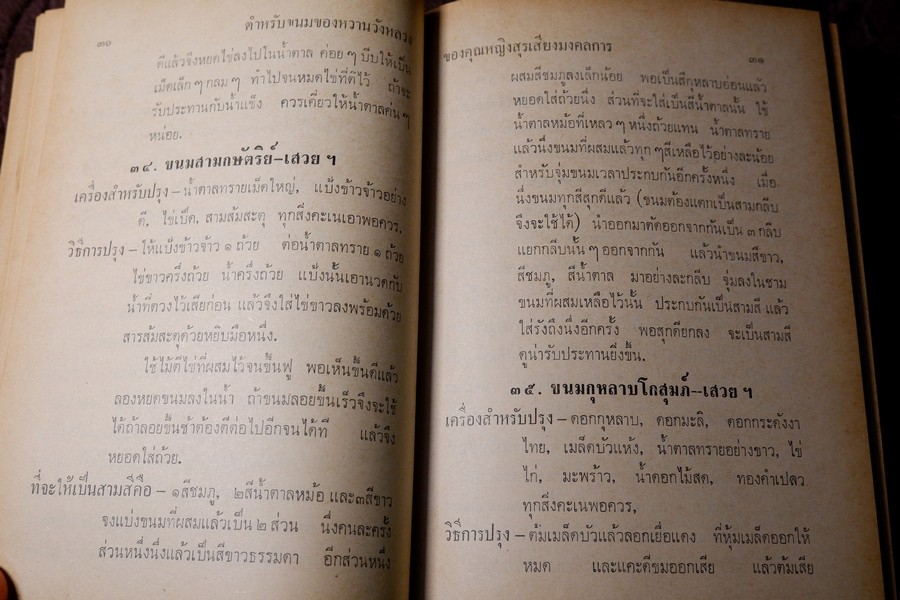 ๓๐
ตำหรับขนมของหวานวังหลวง
ดีแล้วจึงหยดไข่ลงไปในน้ำตาล ค่อย ๆ บีบให้เป็น
เม็ดเล็ก ๆ กลม ๆ ทำไปจนหมดไข่ที่ตีไว้ ถ้าจะ
รับประทานกับน้ำแข็ง ควรเคี่ยวให้น้ำตาลค่น ๆ
หน่อย.
๓๔. ขนมสามกษัตริย์-เสวย ฯ
เครื่องสำหรับปรุง – น้ำตาลทรายเม็ดใหญ่, แป้งข้าวจ้าวอย่าง
ดี, ไข่เป็ด, สารส้มสะตุ ทุกสิ่งคะเนเอาพอควร,
วิธีการปรุง – ให้แป้งข้าวจ้าว ๑ ถ้วย ต่อน้ำตาลทราย ๑ ถ้วย
ไข่ขาวครึ่งถ้วย น้ำครึ่งถ้วย แป้งนั้นเอานวดกับ
น้ำที่ตวงไว้เสียก่อน แล้วจึงใส่ไข่ขาวลงพร้อมด้วย
สารส้มสะตุด้วยหยิบมือหนึ่ง.
ใช้ไม้ตีไข่ที่ผสมไว้จนขึ้นฟู พอเห็นขึ้นดีแล้ว
ลองหยดขนมลงในน้ำ ถ้าขนมลอยขึ้นเร็วจึงจะใช้
ได้ถ้าลอยขึ้นช้าต้องตีต่อไปอีกจนได้ที่ แล้วจึง
หยอดใส่ถ้วย.
ที่จะให้เป็นสามสีคือ – ๑สีชมภู, ๒สีน้ำตาลหม้อ และ๓สีขาว
จงแบ่งขนมที่ผสมแล้วเป็น ๒ ส่วน นึ่งคนละครั้ง
ส่วนหนึ่งนึ่งแล้วเป็นสีขาวธรรมดา อีกส่วนหนึ่ง
ของคุณหญิงสุรเสียงมงคลการ
๓๑
ผสมสีชมภูลงเล็กน้อย พอเป็นสีกุหลาบอ่อนแล้ว
หยอดใส่ถ้วยนึ่ง ส่วนที่จะใส่เป็นสีน้ำตาลนั้น ใช้
น้ำตาลหม้อที่เหลว ๆ หนึ่งถ้วยแทน น้ำตาลทราย
แล้วนึ่งขนมที่ผสมแล้วทุก ๆสีเหลือไว้อย่างละน้อย
สำหรับจุ่มขนมเวลาประกบกันอีกครั้งหนึ่ง เมื่อ
นึ่งขนมทุกสีสุกดีแล้ว (ขนมต้องแตกเป็นสามกลีบ
จึงจะใช้ได้) นำออกมาตัดออกจากกันเป็น ๓ กลีบ
แยกกลีบนั้น ๆ ออกจากกัน แล้วนำขนมสีขาว,
สีชมภู, สีน้ำตาล มาอย่างละกลีบ จุ่มลงในชาม
ขนมที่ผสมเหลือไว้นั้น ประกบกันเป็นสามสี แล้ว
ใส่รังถึงนึ่งอีกครั้ง พอสุกดียกลง จะเป็นสามสี
ดูน่ารับประทานยิ่งขึ้น.
๓๕. ขนมกุหลาบโกสุมภ์–เสวย ฯ
เครื่องสำหรับปรุง – ดอกกุหลาบ, ดอกมะลิ, ดอกกระดังงา
ไทย, เมล็ดบัวแห้ง, น้ำตาลทรายอย่างขาว, ไข่
ไก่, มะพร้าว, น้ำดอกไม้สด, ทองคำเปลว
ทุกสิ่งคะเนพอควร,
วิธีการปรุง – ต้มเมล็ดบัวแล้วลอกเยื่อแดง ที่หุ้มเมล็ดออกให้
หมด และแคะดีขมออกเสีย แล้วต้มเสีย